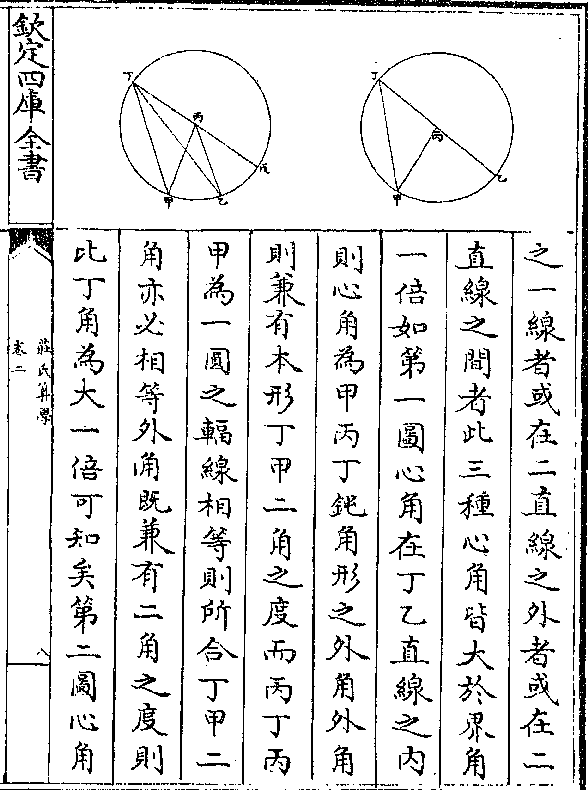 欽定四庫全書
莊氏算學
卷二
八
丁
丙
乙
甲
丁
丙
戊
甲
乙
之一線者或在二直線之外者或在二
直線之間者此三種心角皆大於界角
一倍如第一圖心角在丁乙直線之内
則心角為甲丙丁鈍角形之外角外角
則兼有本形丁甲二角之度而丙丁丙
甲為一圓之輻線相等則所合丁甲二
角亦必相等外角既兼有二角之度則
比丁角為大一倍可知矣第二圖心角